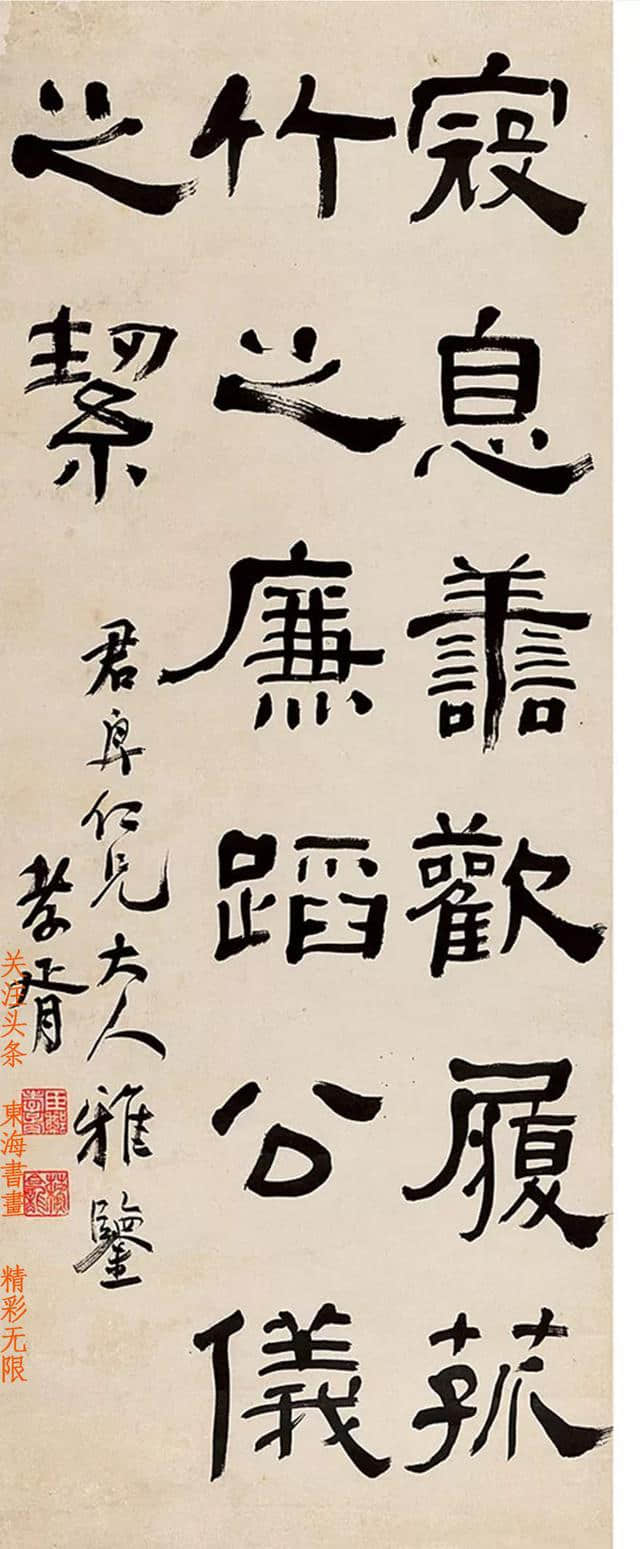 寇息譱歡履菰
竹之廉蹈公儀
之絜
君仁兄大人雅鑒
孝胥
关注头条 東海書畫 精彩无限